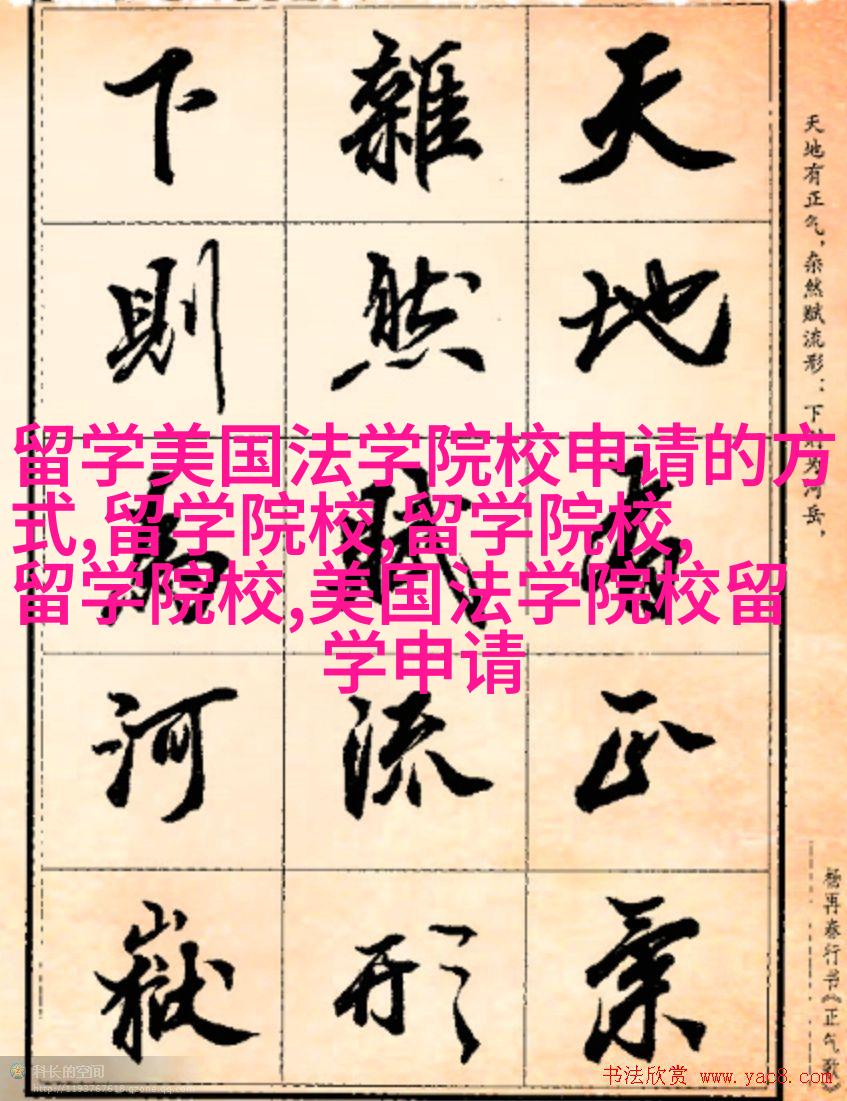 天地有正氣
雜然賦流形
下則為河嶽
天地有正气，杂然赋流形：下则为河岳，
杨再春行书《正气歌》
留学美国法学院校申请的方
式,留学院校,留学院校,
留学院校,美国法学院校留
学申请
科长的空间
http://1193767618.qzone.qq.com
书法欣赏 www.yac8.com